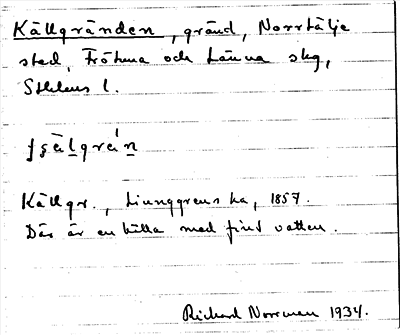 Källgränden, gränd, Norrtälje
stad, Frötuna och Länna skg,
Sthlms l.
Källgr., Ljunggrens ka, 1857.
Där är en källa med fint vatten.
Richard Norrman 1934.